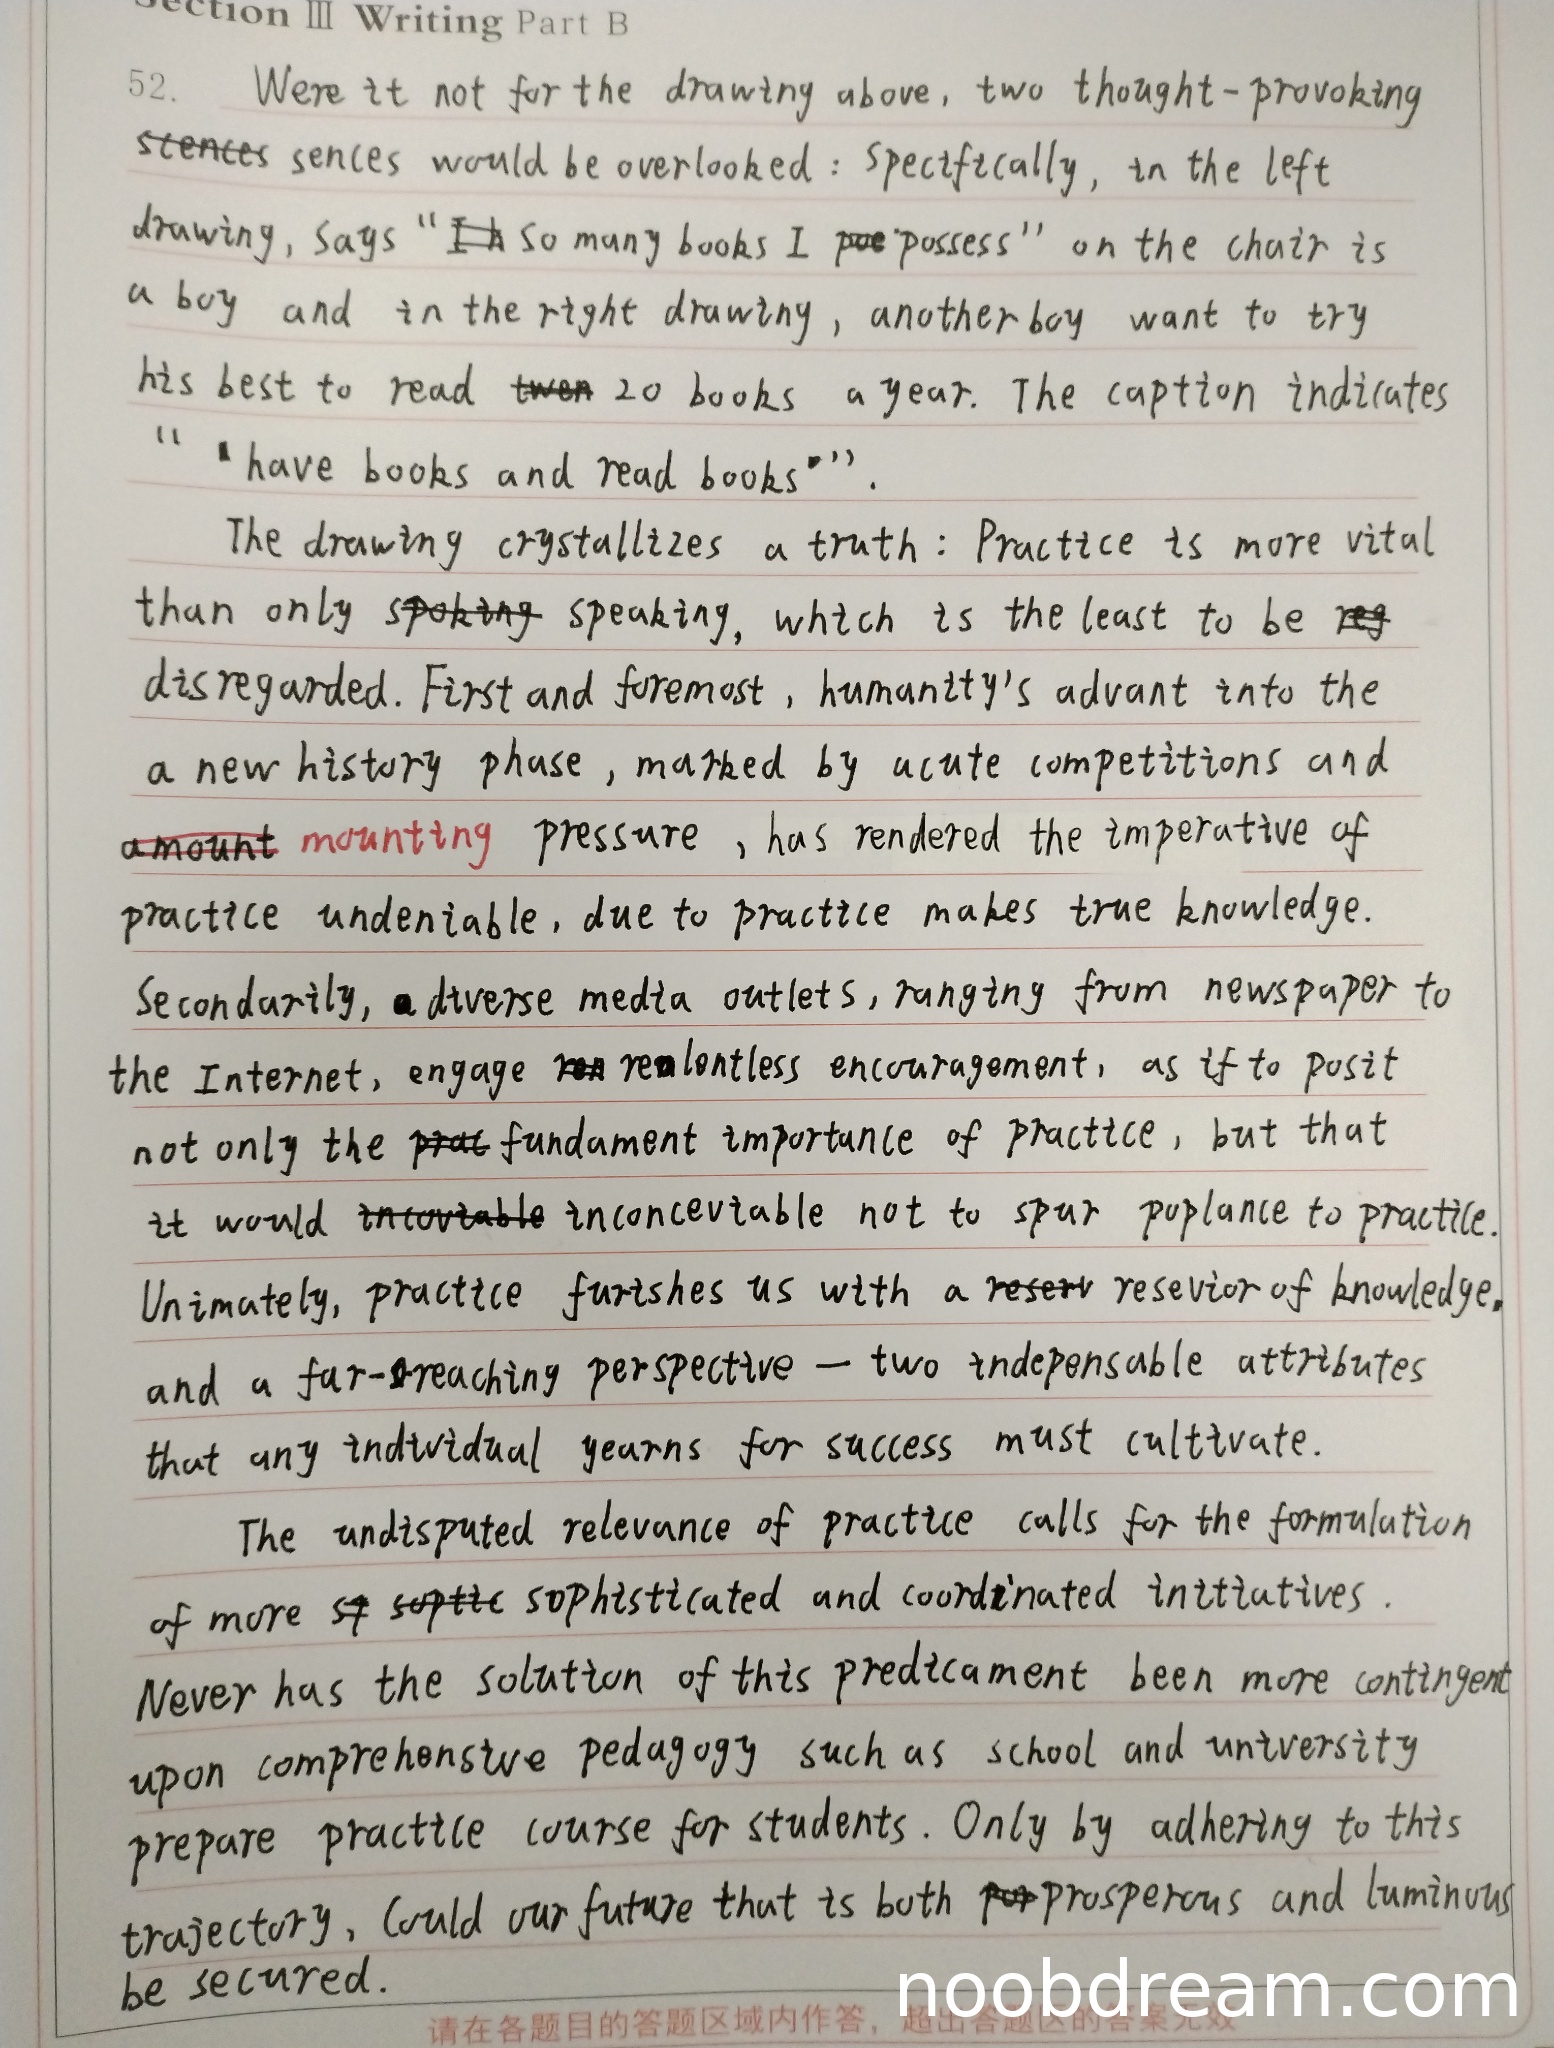 Section Ⅲ Writing Part B
52. Were it not for the drawing above, two thought-provoking
scences sences would be overlooked : Specifically, in the left
drawing, says " I h so many books I poe possess" on the chair is
a boy and in the right drawing, another boy want to try
his best to read twen 20 books a year. The caption indicates
" have books and read books".
The drawing crystallizes a truth : Practice is more vital
than only spoking speaking, which is the least to be reg
disregarded. First and foremost, humanity's advant into the
a new history phase, marked by acute competitions and
amount mounting pressure, has rendered the imperative of
practice undeniable, due to practice makes true knowledge.
Secondarily, diverse media outlets, ranging from newspaper to
the Internet, engage ren relentless encouragement, as if to posit
not only the prac fundament importance of practice, but that
it would incoviable inconceviable not to spur poplance to practice.
Unimately, practice furishes us with a reserv resevior of knowledge.
and a far-reaching perspective — two indepensable attributes
that any individual yearns for success must cultivate.
The undisputed relevance of practice calls for the formulation
of more sf soptic sophisticated and coordinated initiatives.
Never has the solution of this predicament been more contingent
upon comprehensive pedagogy such as school and university
prepare practice course for students. Only by adhering to this
trajectory, Could our future that is both por prosperous and luminous
be secured.
noobdream.com
请在各题目的答题区域内作答，超出答题区的答案无效